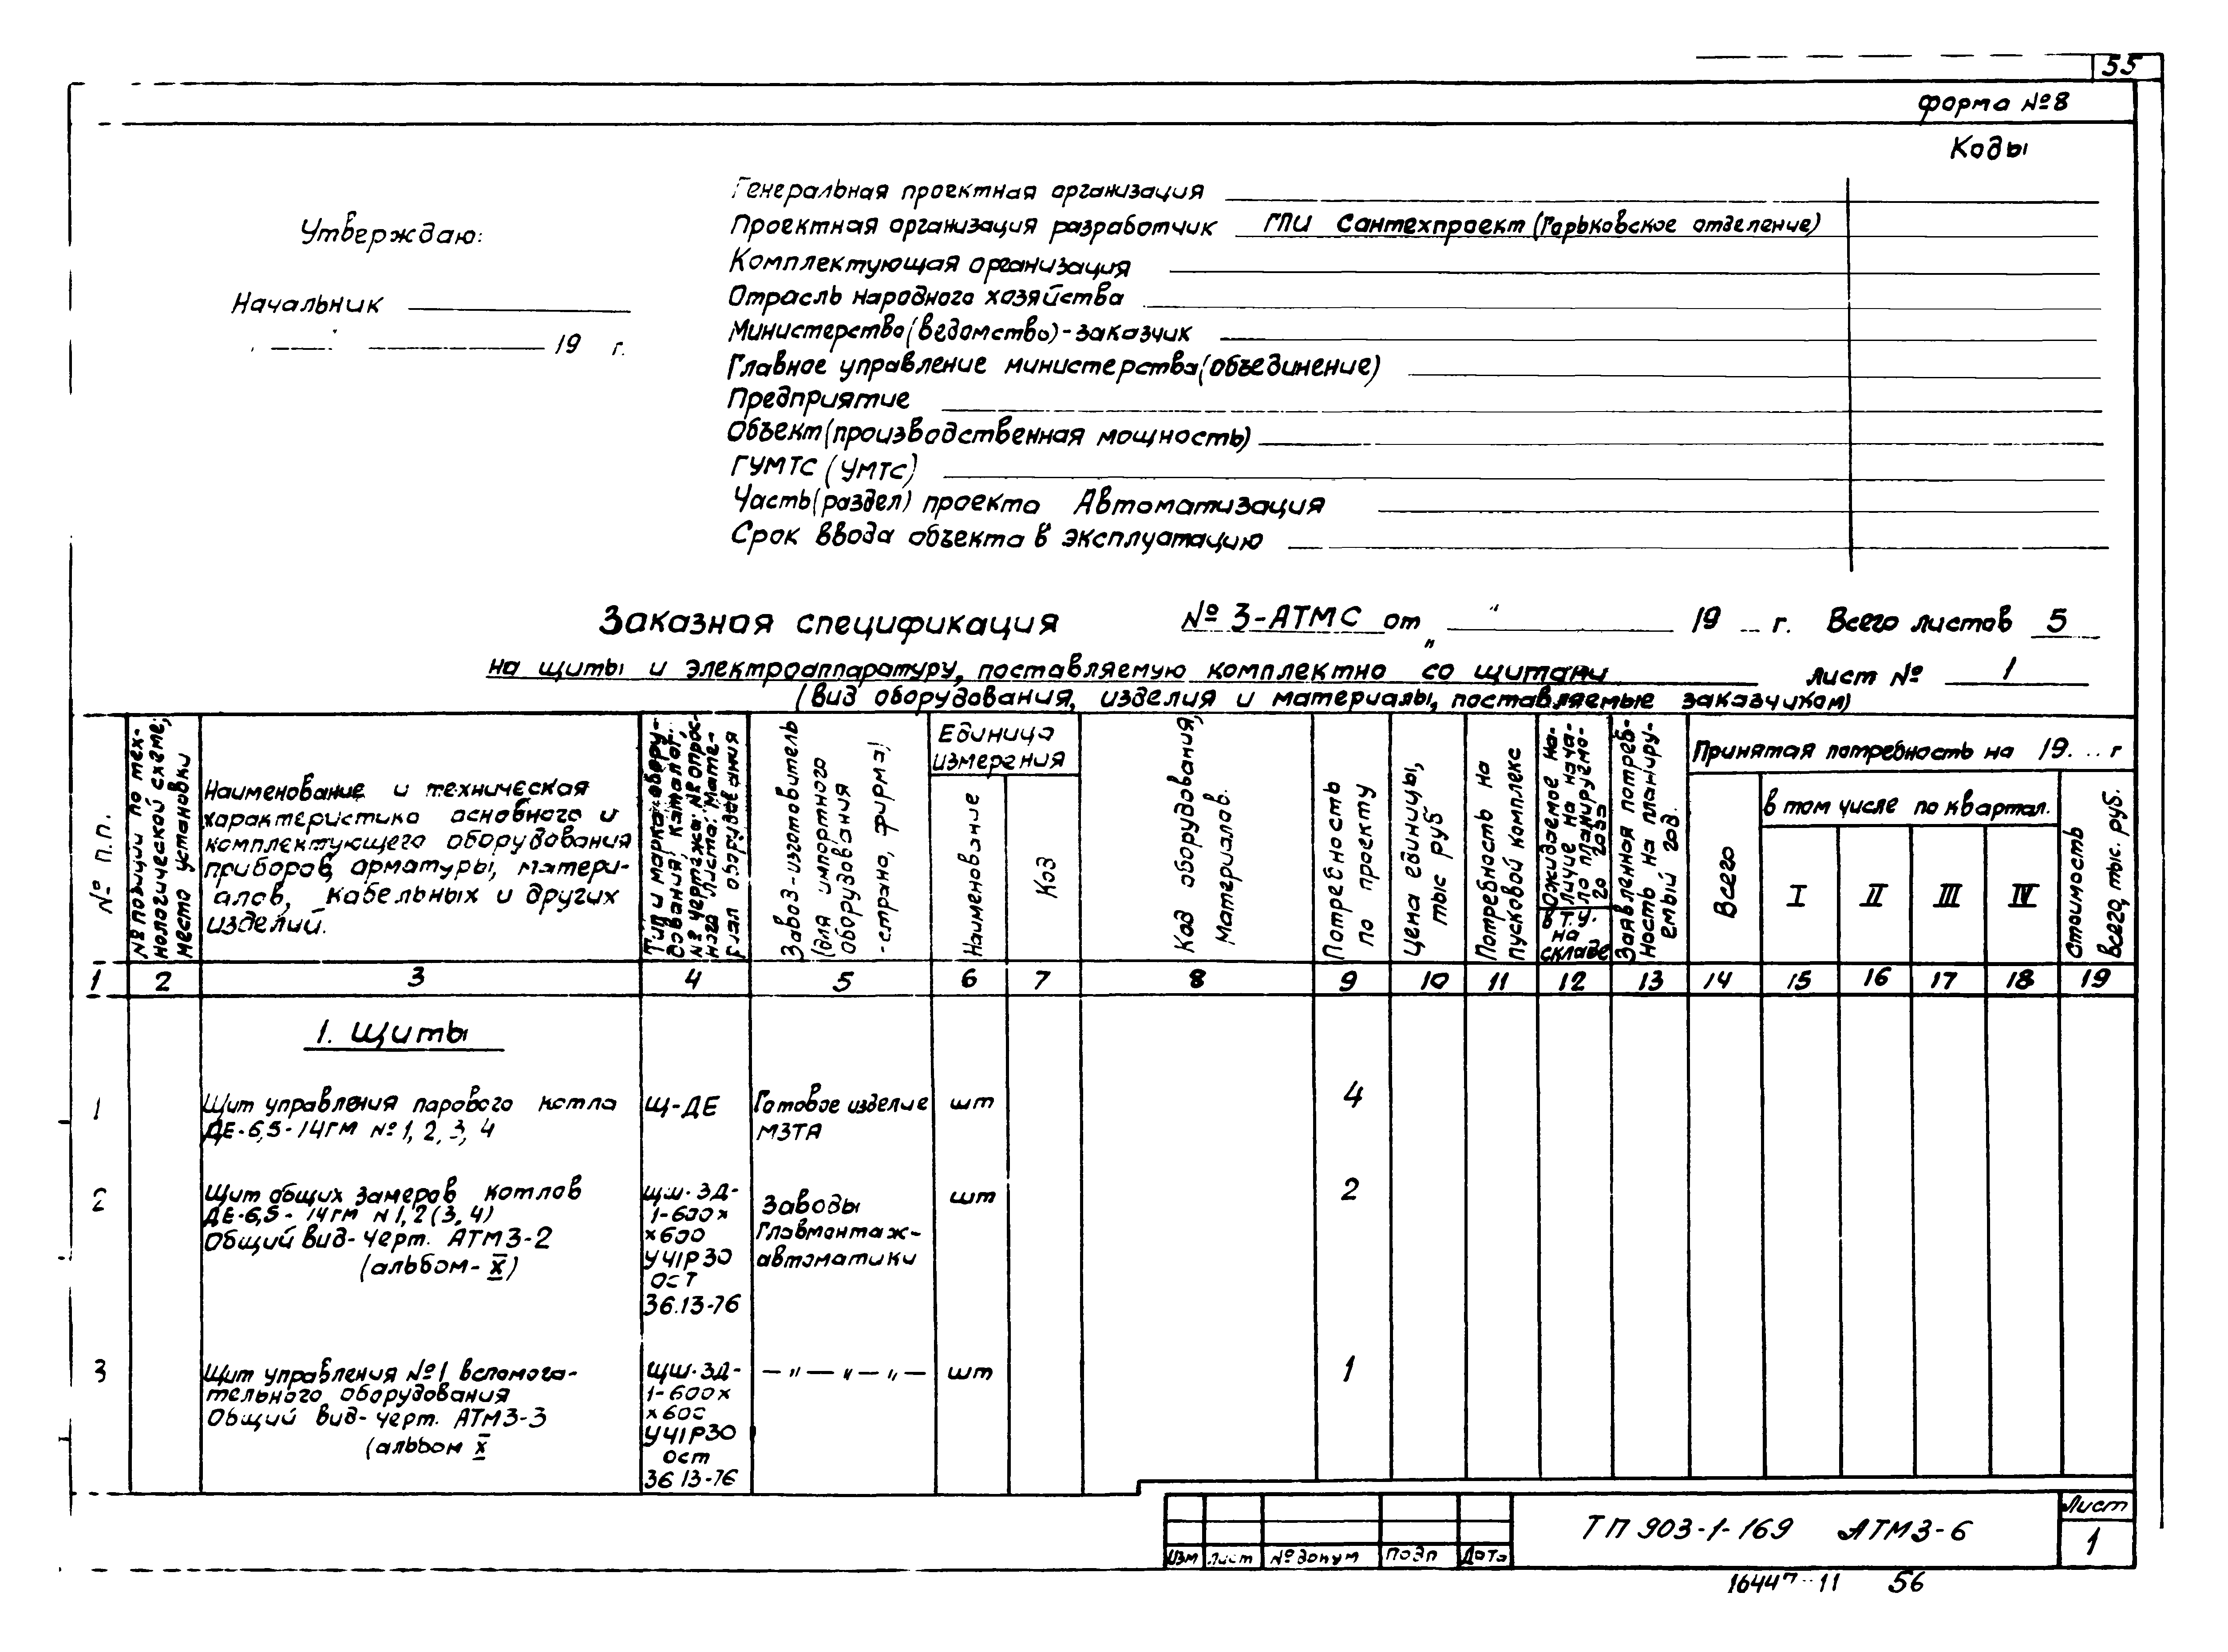 55
форма №8
Коды
Утверждаю:
Начальник
19 г.
Генеральная проектная организация
Проектная организация разработчик ГПИ Сантехпроект (Горьковское отделение)
Комплектующая организация
Отрасль народного хозяйства
Министерство (ведомство)-заказчик
Главное управление министерства (объединение)
Предприятие
Объект (производственная мощность)
ГУМТС (УМТС)
Часть (раздел) проекта Автоматизация
Срок ввода объекта в эксплуатацию
Заказная спецификация № 3-АТМС от „ " 19 г. Всего листов 5
на щиты и электроаппаратуру, поставляемую комплектно со щитами лист № 1
(вид оборудования, изделия и материалы, поставляемые заказчиком)
№ п.п.
№ позиции по тех-
нологической схеме;
место установки
Наименование и техническая
характеристика основного и
комплектующего оборудования
приборов, арматуры, матери-
алов, кабельных и других
изделий.
Тип и марка обору-
дования, каталог,
№ чертежа, № опрос-
ного листа. Мате-
риал оборудования
Завод-изготовитель
(для импортного
оборудования
-страна, фирма)
Единица
измерения
Наименование
Код
Код оборудования,
материалов.
Потребность
по проекту
Цена единицы,
тыс руб
Потребность на
пусковой комплекс
Ожидаемое на-
личие на нача-
ло планируемо-
го года
в т.ч.
на
складе
Заявленная потреб-
ность на планиру-
емый год.
Принятая потребность на 19... г
Всего
в том числе по квартал.
I II III IV
Стоимость
всего, тыс. руб.
1 2 3 4 5 6 7 8 9 10 11 12 13 14 15 16 17 18 19
1. Щиты
1 Щит управления парового котла Щ-ДЕ Готовое изделие шт 4
ДЕ-6,5-14ГМ № 1, 2, 3, 4 МЗТА
2 Щит общих замеров котлов ЩШ-ЗД- Заводы шт 2
ДЕ-6,5-14ГМ N 1, 2 (3, 4) 1-600х Главмонтаж-
Общий вид-черт. АТМ3-2 х600 автоматики
(альбом-X) УЧ1Р30
ОСТ
36.13-76
3 Щит управления №1 вспомога- ЩШ-ЗД- —"—"—"— шт 1
тельного оборудования 1-600х
Общий вид-черт. АТМ3-3 х600
(альбом X УЧ1Р30
ост
36 13-76
Изм Лист № докум Подп Дата
ТП 903-1-169 АТМ3-6
Лист
1
16447-11 56